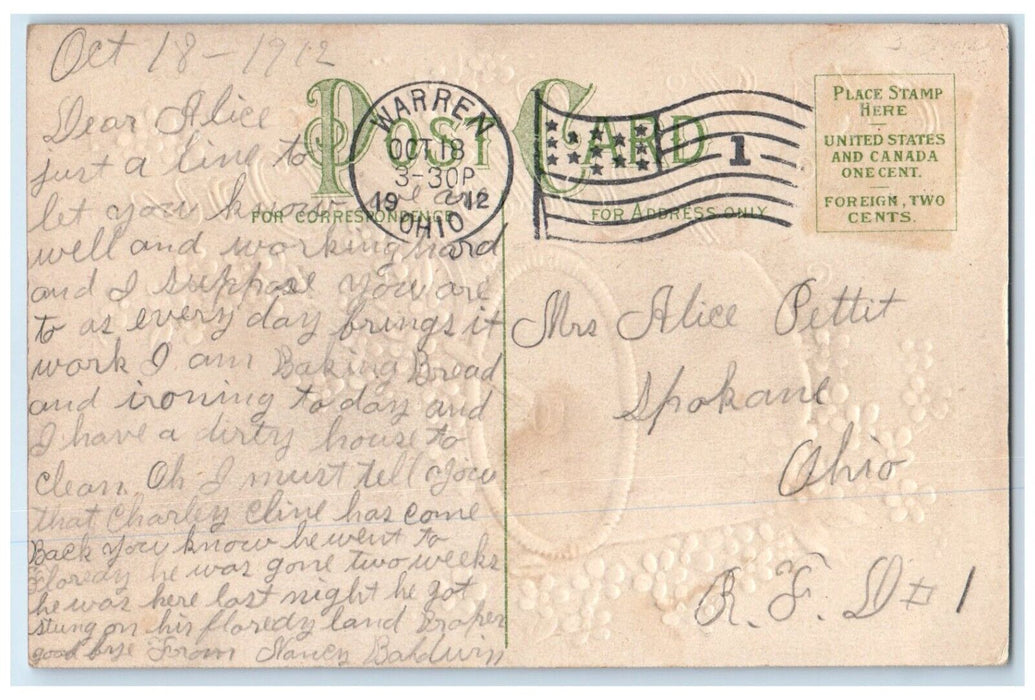 Oct 18 - 1912
POST CARD
FOR CORRESPONDENCE
FOR ADDRESS ONLY
WARREN
OCT 18
3-30P
1912
OHIO
1
PLACE STAMP
HERE
UNITED STATES
AND CANADA
ONE CENT.
FOREIGN, TWO
CENTS.
Dear Alice
just a line to
let you know we are
well and working hard
and I suppose you are
to as every day brings it
work I am Baking Bread
and ironing to day and
I have a dirty house to
clean. Oh I must tell you
that Charley Cline has come
Back you know he went to
Floredy he was gone two weeks
he was here last night he got
stung on his floredy land
good bye From Nancy Baldwin
Mrs Alice Pettit
Spokane
Ohio
R. F. D # 1